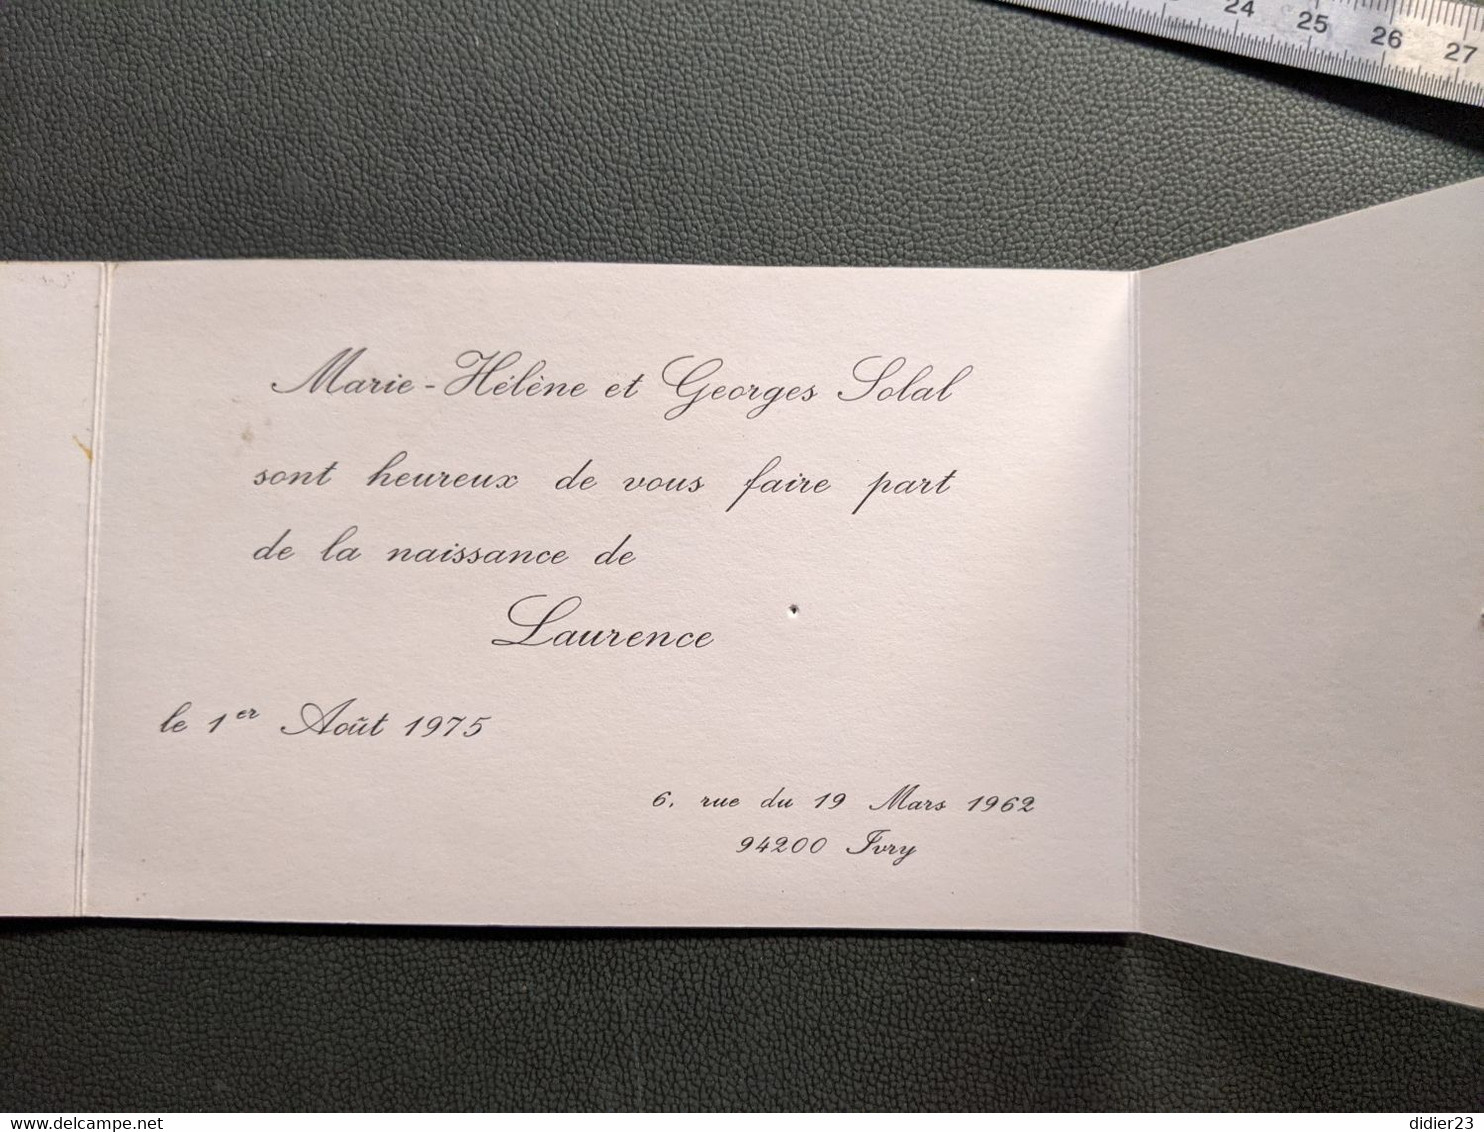 24 25 26 27
Marie-Hélène et Georges Solal
sont heureux de vous faire part
de la naissance de
Laurence
le 1er Août 1975
6, rue du 19 Mars 1962
94200 Ivry
www.delcampe.net
didier23